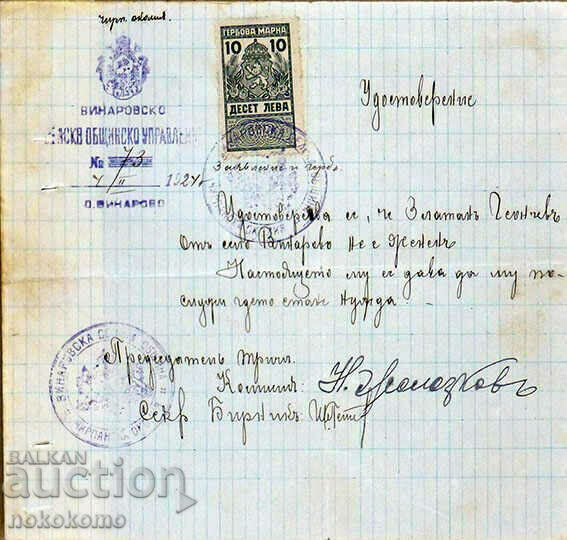 чирп. околия.
ВИНАРОВСКО
СЕЛСКО ОБЩИНСКО УПРАВЛЕНИЕ
№ 73
4/II 1924 г.
с. ВИНАРОВО
ГЕРБОВА МАРКА
10 10
ДЕСЕТ ЛЕВА
Удостоверение
Заявление и герб.
Удостоверява се, че Златанъ
отъ село Винарово не е жененъ
Настоящето му се дава да му по-
служи гдето стане нужда.
Председатель трич.
Комисия:
Секр. Бирникъ:
ВИНАРОВСКА
ЧИРПАНСКА
BALKAN
auction
nokokomo